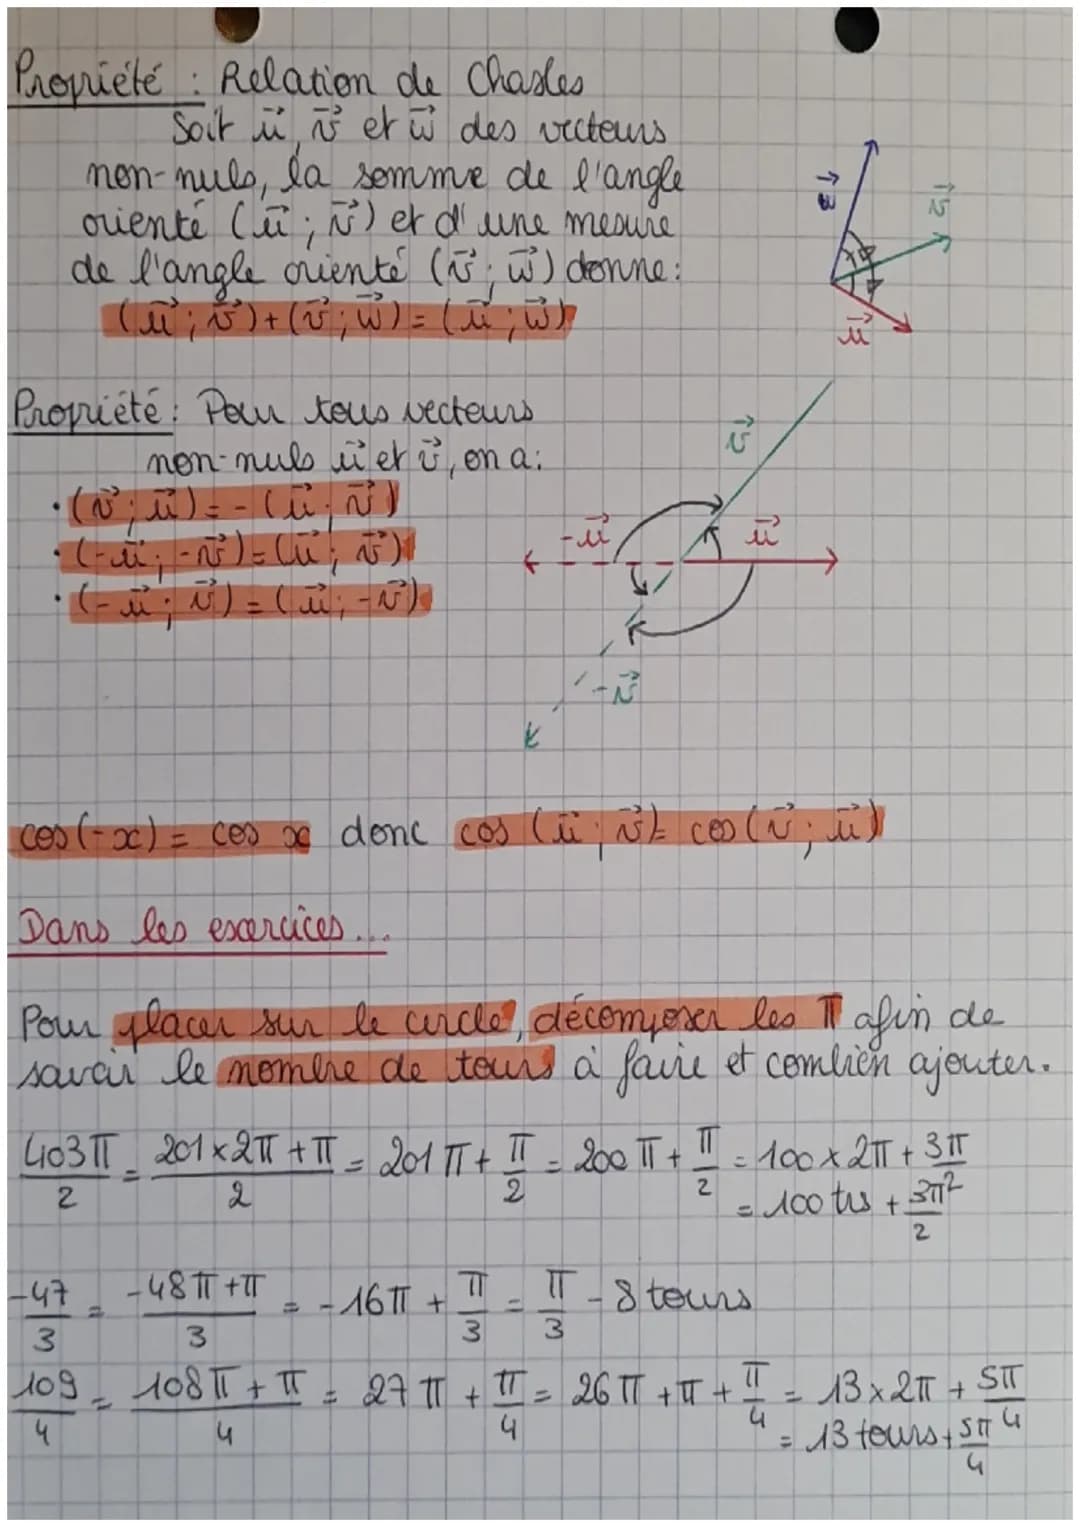 Propriété : Relation de Chasles
Soit u⃗, v⃗ et w⃗ des vecteurs
non-nuls, la somme de l'angle
orienté (u⃗ ; v⃗) et d'une mesure
de l'angle orienté (v⃗ ; w⃗) donne :
(u⃗ ; v⃗) + (v⃗ ; w⃗) = (u⃗ ; w⃗)
w⃗
v⃗
u⃗
Propriété : Pour tous vecteurs
non-nuls u⃗ et v⃗, on a :
• (v⃗ ; u⃗) = - (u⃗ ; v⃗)
• (-u⃗ ; -v⃗) = (u⃗ ; v⃗)
• (-u⃗ ; v⃗) = (u⃗ ; -v⃗)
v⃗
-u⃗
u⃗
-v⃗
cos(-x) = cos x donc cos (u⃗ ; v⃗) = cos (v⃗ ; u⃗)
Dans les exercices...
Pour placer sur le cercle, décomposer les π afin de
savoir le nombre de tours à faire et combien ajouter.
403π/2 = (201×2π + π)/2 = 201π + π/2 = 200π + π/2 = 100×2π + 3π/2
= 100 trs + 3π/2
-47/3 = (-48π + π)/3 = -16π + π/3 = π/3 - 8 tours
109/4 = (108π + π)/4 = 27π + π/4 = 26π + π + π/4 = 13×2π + 5π/4
= 13 tours + 5π/4